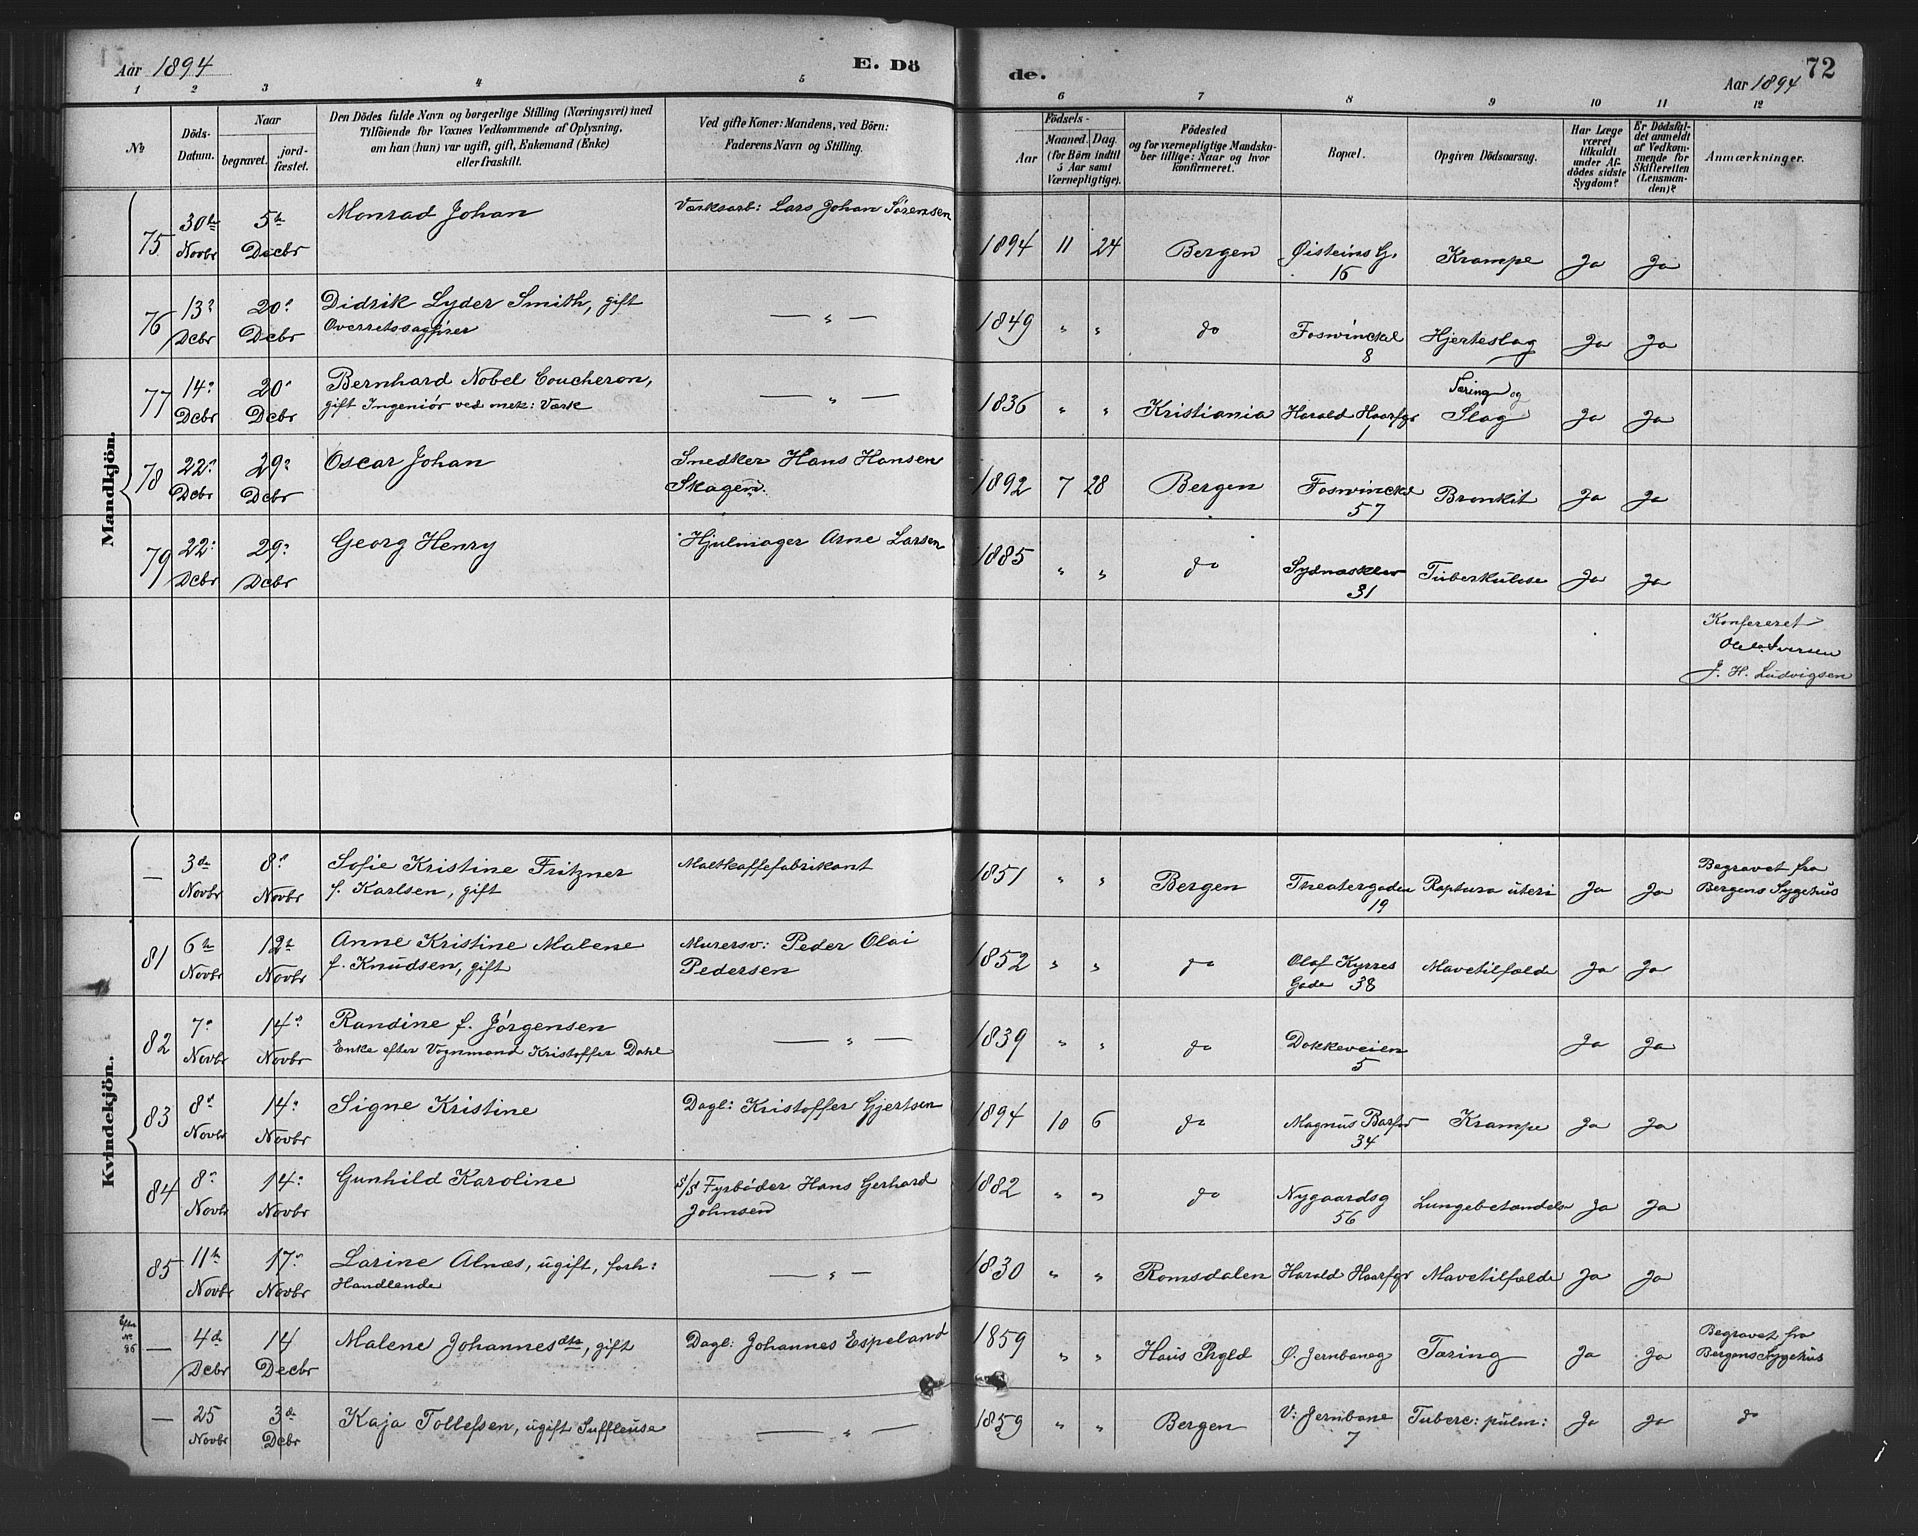 Aar 1894
E. Dö
de.
72
Aar 1894
1 2 3 4 5 6 7 8 9 10 11 12
No
Döds-Datum.
Naar
begravet.
jord-fæstet.
Den Dödes fulde Navn og borgerlige Stilling (Næringsvei) med
Tilföiende for Voxnes Vedkommende af Oplysning,
om han (hun) var ugift, gift, Enkemand (Enke)
eller fraskilt.
Ved gifte Koner: Mandens, ved Börn:
Faderens Navn og Stilling.
Födsels-
Aar
Maaned. Dag.
(for Börn indtil
5 Aar samt
Værnepligtige).
Födested
og for værnepligtige Mandska-
ber tillige: Naar og hvor
konfirmeret.
Bopæl.
Opgiven Dödsaarsag.
Har Læge
været
tilkaldt
under Af-
dödes sidste
Sygdom?
Er Dödsfal-
det anmeldt
af Vedkom-
mende for
Skifteretten
(Lensman-
den)?
Anmærkninger.
Mandkjön.
75 30te Novbr 5te Decbr Monrad Johan Værksarb: Lars Johan Sørensen 1894 11 24 Bergen Øisteins G. 15 Krampe Ja Ja
76 13' Dcbr 20' Dcbr Didrik Lyder Smith, gift
Overretssagfører — " — 1849 " " do Foswinckel 8 Hjerteslag Ja Ja
77 14' Dcbr 20' Dcbr Bernhard Nobel Coucheron,
gift Ingeniør ved mek: Værk — " — 1836 " " Kristiania Harald Haarfgr 1 Tæring og Slag Ja Ja
78 22' Dcbr 29' Dcbr Oscar Johan Snedker Hans Hansen
Skagen. 1892 7 28 Bergen Foswinckel 57 Bronkit Ja Ja
79 22' Dcbr 29' Dcbr Georg Henry Hjulmager Arne Larsen 1885 " " do Sydnæsklev 31 Tuberkulose Ja Ja
Konfereret
Iversen
J. H. Ludvigsen
Kvindekjön.
— 3de Novbr 8' Novbr Sofie Kristine Fritzner
f. Karlsen, gift Maltkaffefabrikant 1851 " " Bergen Theatergaden 19 Ruptura uteri Ja Ja Begravet fra
Bergens Sygehus
81 6te Novbr 12te Novbr Anne Kristine Malene
f. Knudsen, gift Murersv: Peder Olai
Pedersen 1852 " " do Olaf Kyrres
Gade 38 Mavetilfælde Ja Ja
82 7' Novbr 14' Novbr Randine f. Jørgensen
Enke efter Vognmand Kristoffer Dahl — " — 1839 " " do Dokkeveien 5 Ja Ja
83 8' Novbr 14' Novbr Signe Kristine Dagl: Kristoffer Gjertsen 1894 10 6 do Magnus Barfor 34 Krampe Ja Ja
84 8' Novbr 14' Novbr Gunhild Karoline s/s Fyrbøder Hans Gerhard
Johnsen 1882 " " do Nygaardsg 56 Lungebetændelse Ja Ja
85 11te Novbr 17' Novbr Larine Alnæs, ugift, forh:
Handlende — " — 1830 " " Romsdalen Harald Haarfgr Mavetilfælde Ja Ja
Efter
No.
86 — 4de Dcbr 14 Decbr Malene Johannesdtr, gift Dagl: Johannes Espeland 1859 " " Haus Prgld Ø. Jernbaneg Tæring Ja Ja Begravet fra
Bergens Sygehus
— 25 Novbr 3de Dcbr Kaja Tollefsen, ugift Suffleuse — " — 1859 " " Bergen V: Jernbane 7 Tuberc: pulm: Ja Ja do